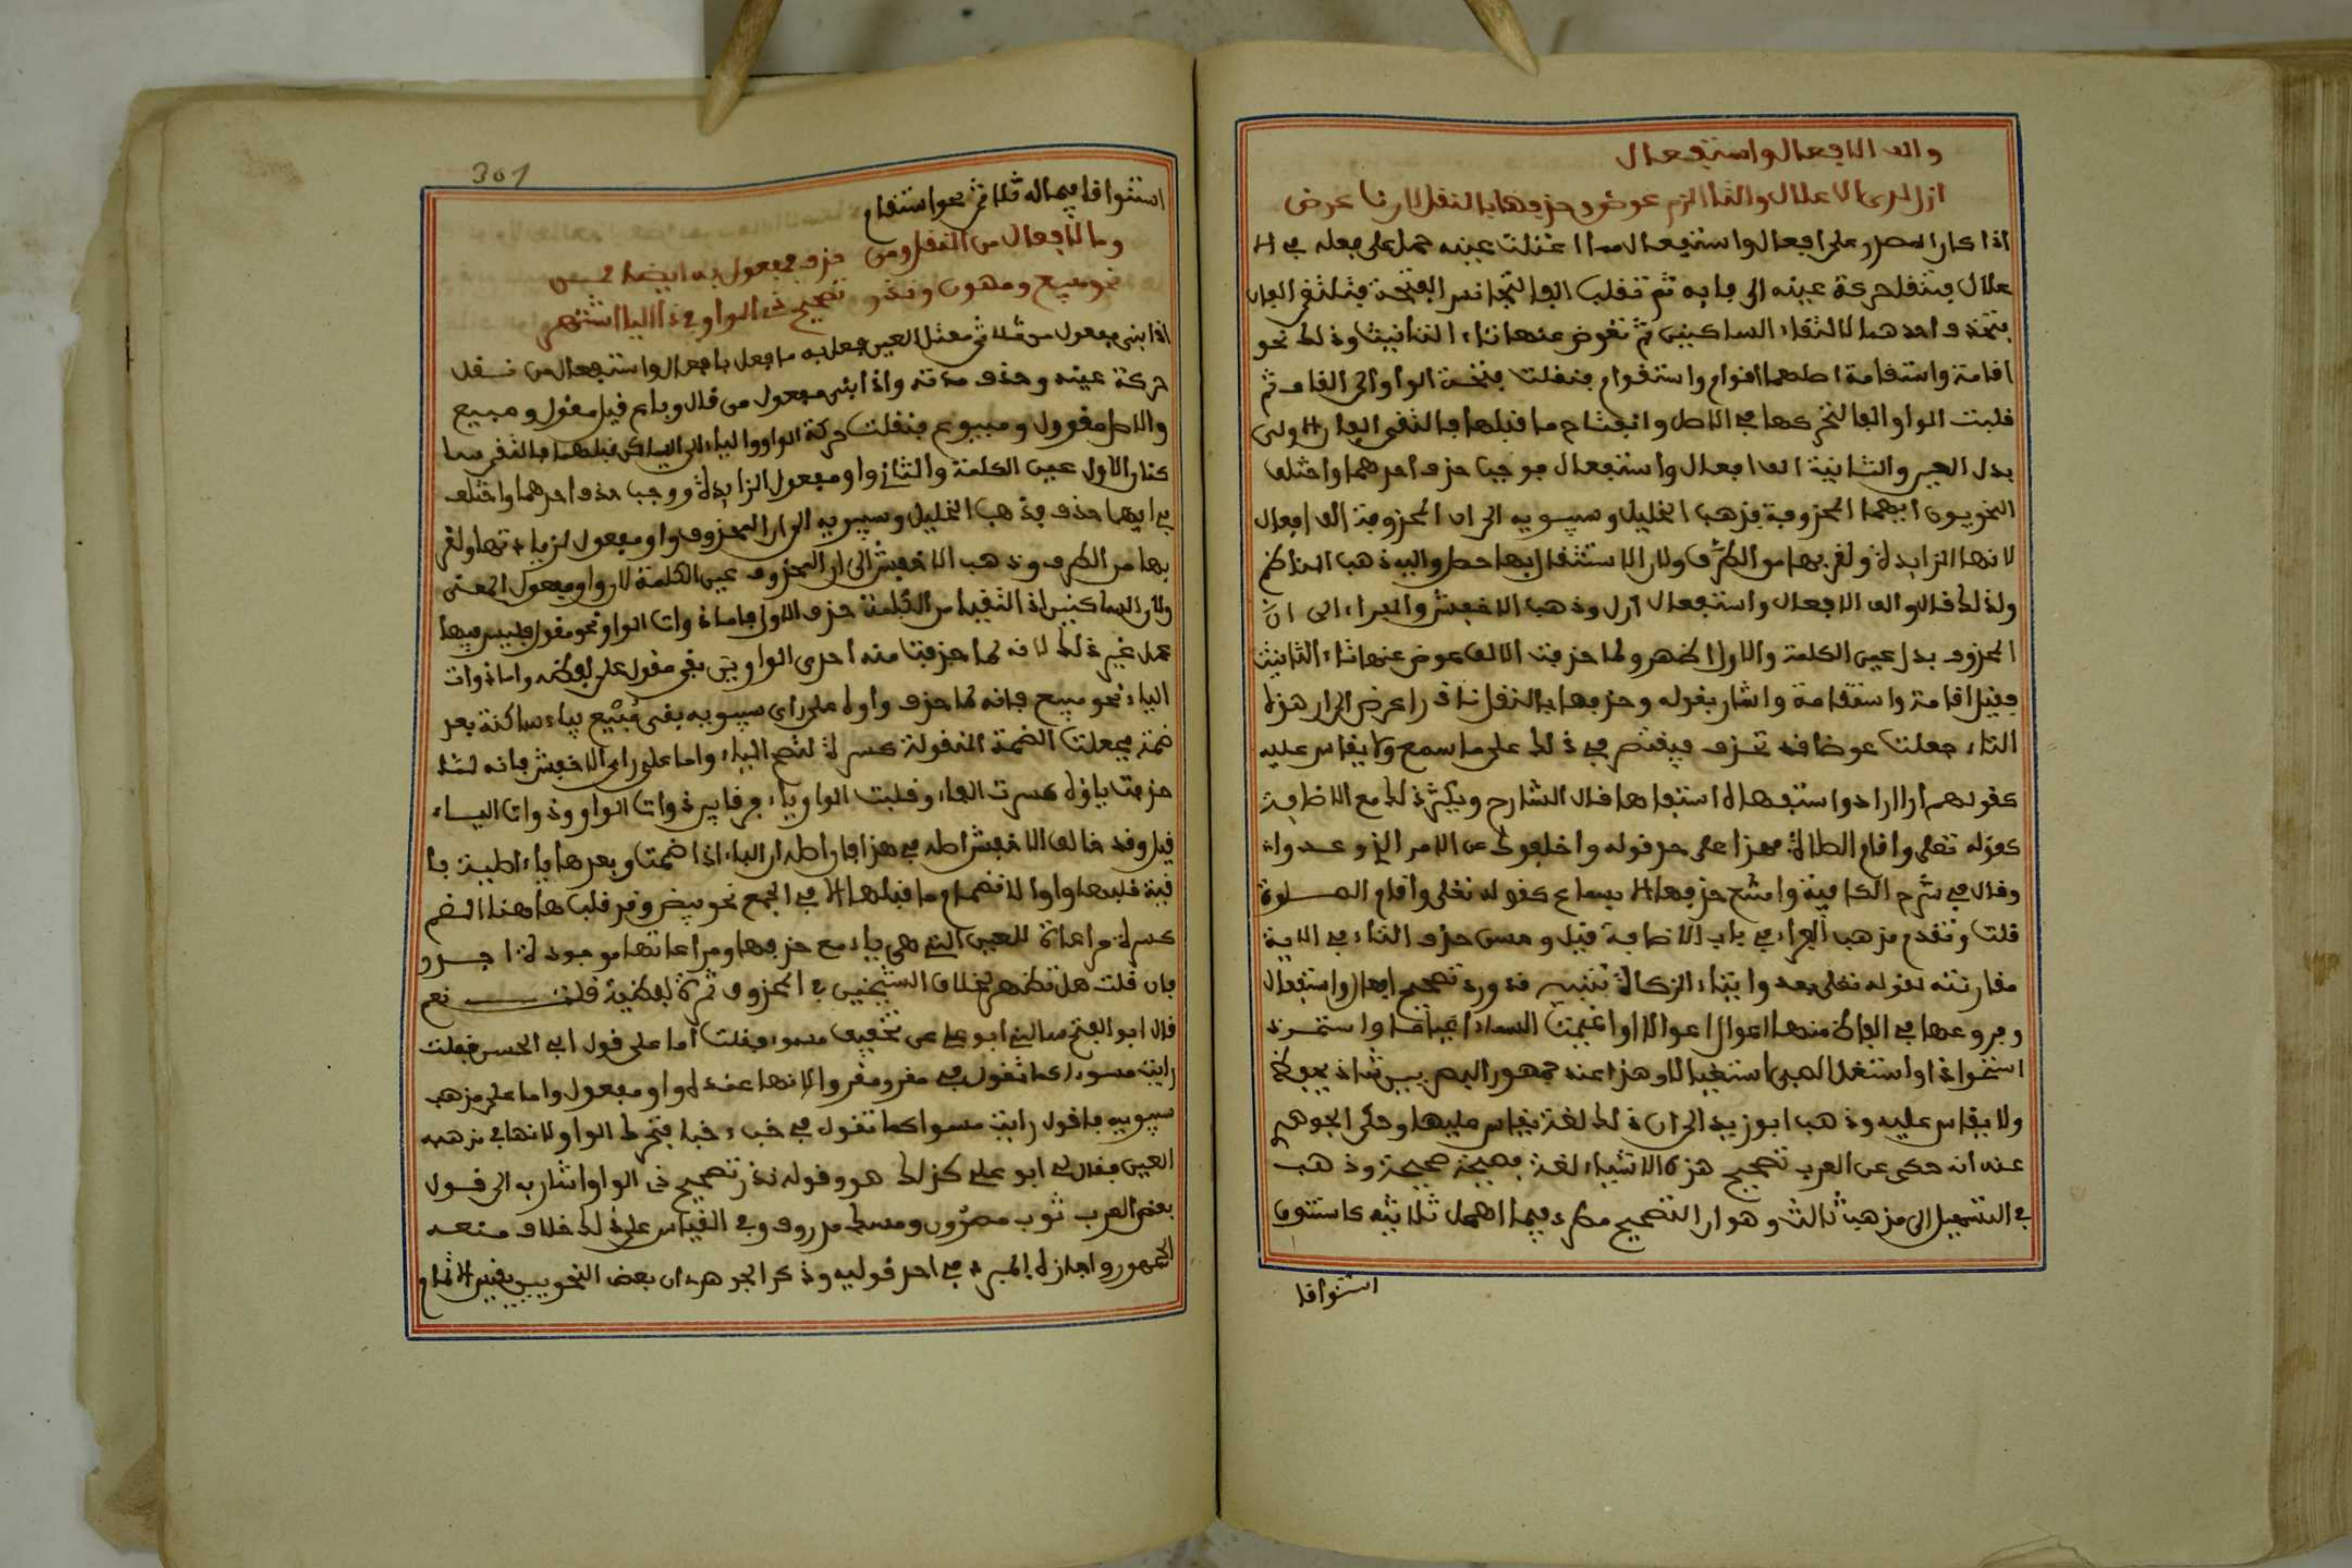 والف الافعال واستفعال
ازل لدى الاعلال والتا الزم عوض وحذفها بالنقل ربما عرض
اذا كان المصدر على افعال واستفعال مما اعتلت عينه حمل على فعله في الا
علال فتنقل حركة عينه الى فايه ثم تقلب الفا لتجانس الفتحة فيلتقي الفان
فتحذف احدهما لالتقاء الساكنين ثم تعوض عنها تاء التانيث وذلك نحو
اقامة واستقامة اصلهما اقوام واستقوام فنقلت فتحة الواو الى القاف ثم
قلبت الواو الفا لتحركها في الاصل وانفتاح ما قبلها فالتقى الفان الاولى
بدل العين والثانية الف افعال واستفعال فوجب حذف احدهما واختلف
النحويون ايهما المحذوفة فذهب الخليل وسيبويه الى ان المحذوفة الف افعال
لانها الزايدة ولقربها من الطرف ولان الاستثقال بها حصل واليه ذهب الناظم
ولذلك قال والف الافعال واستفعال ازل وذهب الاخفش والفراء الى ان
المحذوف بدل عين الكلمة والاول اظهر ولما حذفت الالف عوض عنها تاء التانيث
فقيل اقامة واستقامة واشار بقوله وحذفها بالنقل نادرا عرض الى ان هذه
التاء جعلت عوضا قد تحذف فيقتصر في ذلك على ما سمع ولا يقاس عليه
كقولهم اراه اراء واستفهاه استفاها قال الشارح ويكثر ذلك مع الاضافة
كقوله تعلى واقام الصلاة فهذا على حد قوله واخلفوك عد الامر الذي وعدوا
وقال في شرح الكافية وامتنع حذفها الا بسماع كقوله تعلى واقام الصلوة
قلت وتقدم مذهب الفراء في باب الاضافة قيل وحسن حذف التاء في الاية
مقارنته لقوله تعلى بعد وايتاء الزكاة تنبيه قد ورد تصحيح افعال واستفعال
وفروعها في الفاظ منها اعول اعوالا واغيمت السماء اغياما واستحوذ
استحواذا واستغيل الصبي استغيالا وهذا عند جمهور البصريين شاذ يحفظ
ولا يقاس عليه وذهب ابو زيد الى ان ذلك لغة يقاس عليها وحكى الجوهري
عنه انه حكى عن العرب تصحيح هذه الاشياء لغة فصيحة صحيحة وذهب
في التسهيل الى مذهب ثالث وهو ان التصحيح مطرد فيما اهمل ثلاثيه كاستنوق
استنواقا
301
استنواقا فيما له ثلاثي نحو استقام
وما لافعال من النقل ومن حذف فمفعول به ايضا قمن
نحو مبيع ومصون وندر تصحيح ذي الواو وفي ذي اليا اشتهر
اذا بني مفعول من ثلاثي معتل العين فعل به ما فعل بافعال واستفعال من نقل
حركة عينه وحذف مدته واذا بني مفعول من قال وباع قيل مقول ومبيع
والاصل مقوول ومبيوع فنقلت حركة الواو والياء الى الساكن قبلهما فالتقى ساكنان
كنان الاول عين الكلمة والثاني واو مفعول الزايدة ووجب حذف احدهما واختلف
في ايهما حذف فذهب الخليل وسيبويه الى ان المحذوف واو مفعول لزيادتها ولقر
بها من الطرف وذهب الاخفش الى ان المحذوف عين الكلمة لان واو مفعول لمعنى
ولان الساكنين اذا التقيا من الكلمة حذف الاول فاما ذوات الواو نحو مقول فليس فيها
عمل غير ذلك لانه لما حذفت منه احدى الواوين بقي مقول على لفظه واما ذوات
الياء نحو مبيع فانه لما حذف واوه على راي سيبويه بقي مبيع بياء ساكنة بعد
ضمة فجعلت الضمة المنقولة كسرة لتصح الياء واما على راي الاخفش فانه لما
حذفت ياؤه كسرت الفاء وقلبت الواو ياء فرقا بين ذوات الواو وذوات الياء
قيل وقد خالف الاخفش اصله في هذا فان اصله ان الياء اذا ضمت وبعدها ياء اصلية با
قية قلبها واوا لانضمام ما قبلها الا في الجمع نحو بيض وقد قلب هاهنا الضم
كسرة مراعاة للعين التي هي ياء مع حذفها ومراعاتها موجودة اجدر
فان قلت هل تظهر لخلاف الشيخين في المحذوف ثمرة لفظية قلت نعم
قال ابو الفتح سالني ابو علي عن تخفيف مسوء فقلت اما على قول ابي الحسن فقلت
رايت مسوا كما تقول في مقرو مقروا لانها عنده واو مفعول واما على مذهب
سيبويه فاقول رايت مسوا كما تقول في خبء خبا فتحرك الواو لانها في مذهبه
العين فقال لي ابو علي كذلك هو وقوله ندر تصحيح ذي الواو اشار به الى قول
بعض العرب ثوب مصوون ومسك مدووف وفي القياس على ذلك خلاف منعه
الجمهور واجازه المبرد في احد قوليه وذكر الجوهري ان بعض النحويين يقيس الاتمام